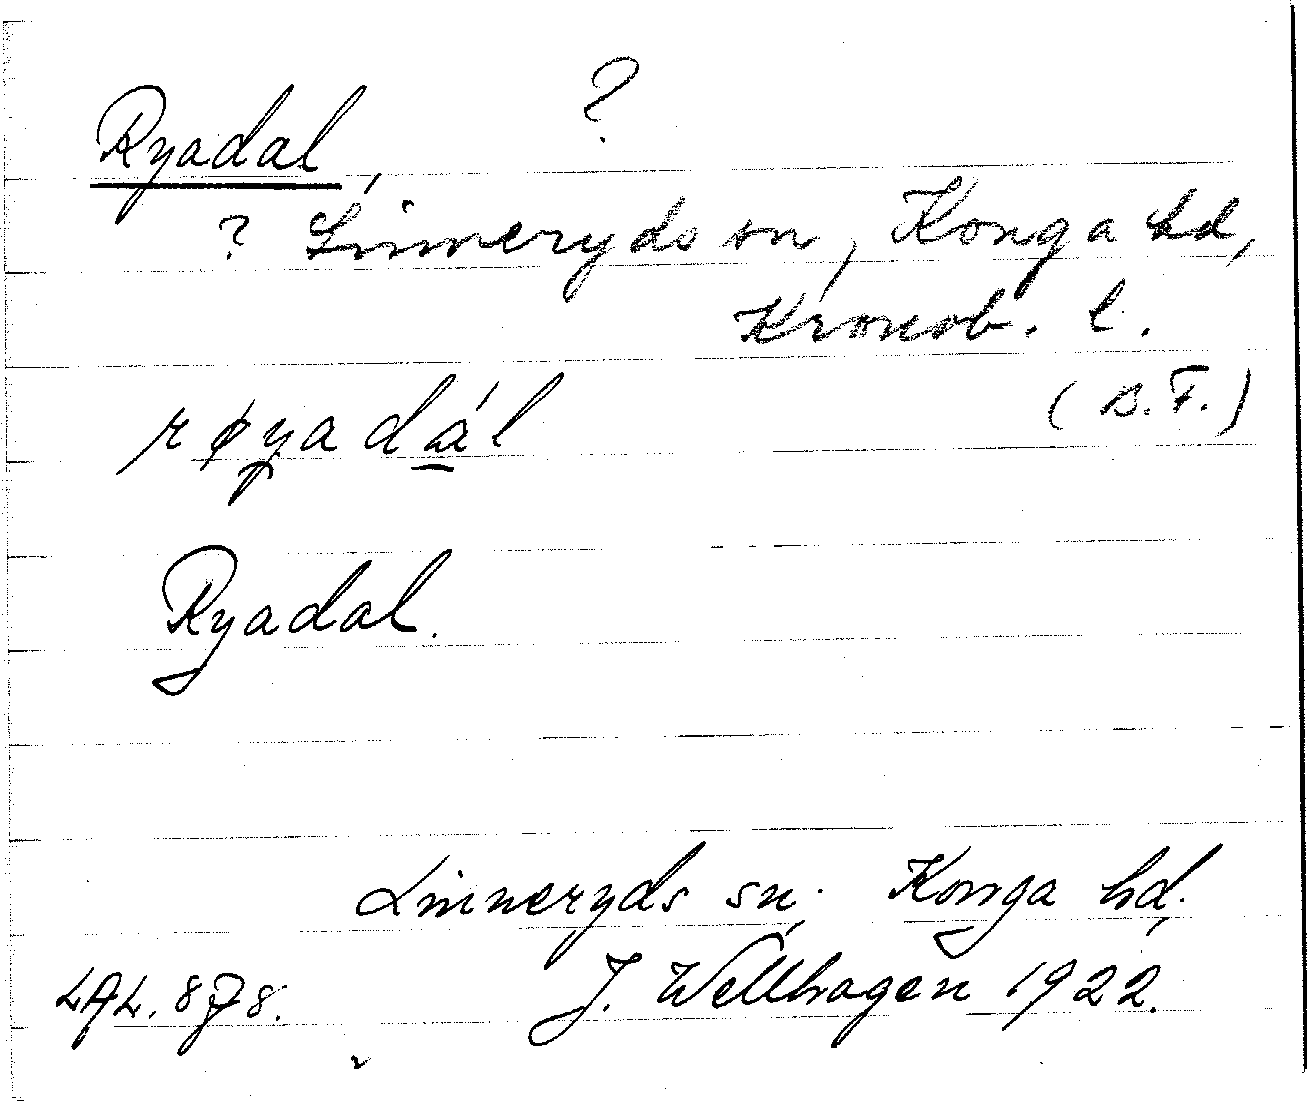 Ryadal, ?
? Linneryds sn, Konga hd,
Kronob. l.
(B.F.)
røyadál
Ryadal.
Linneryds sn. Konga hd.
J. Wellhagen 1922.
LAL. 878.